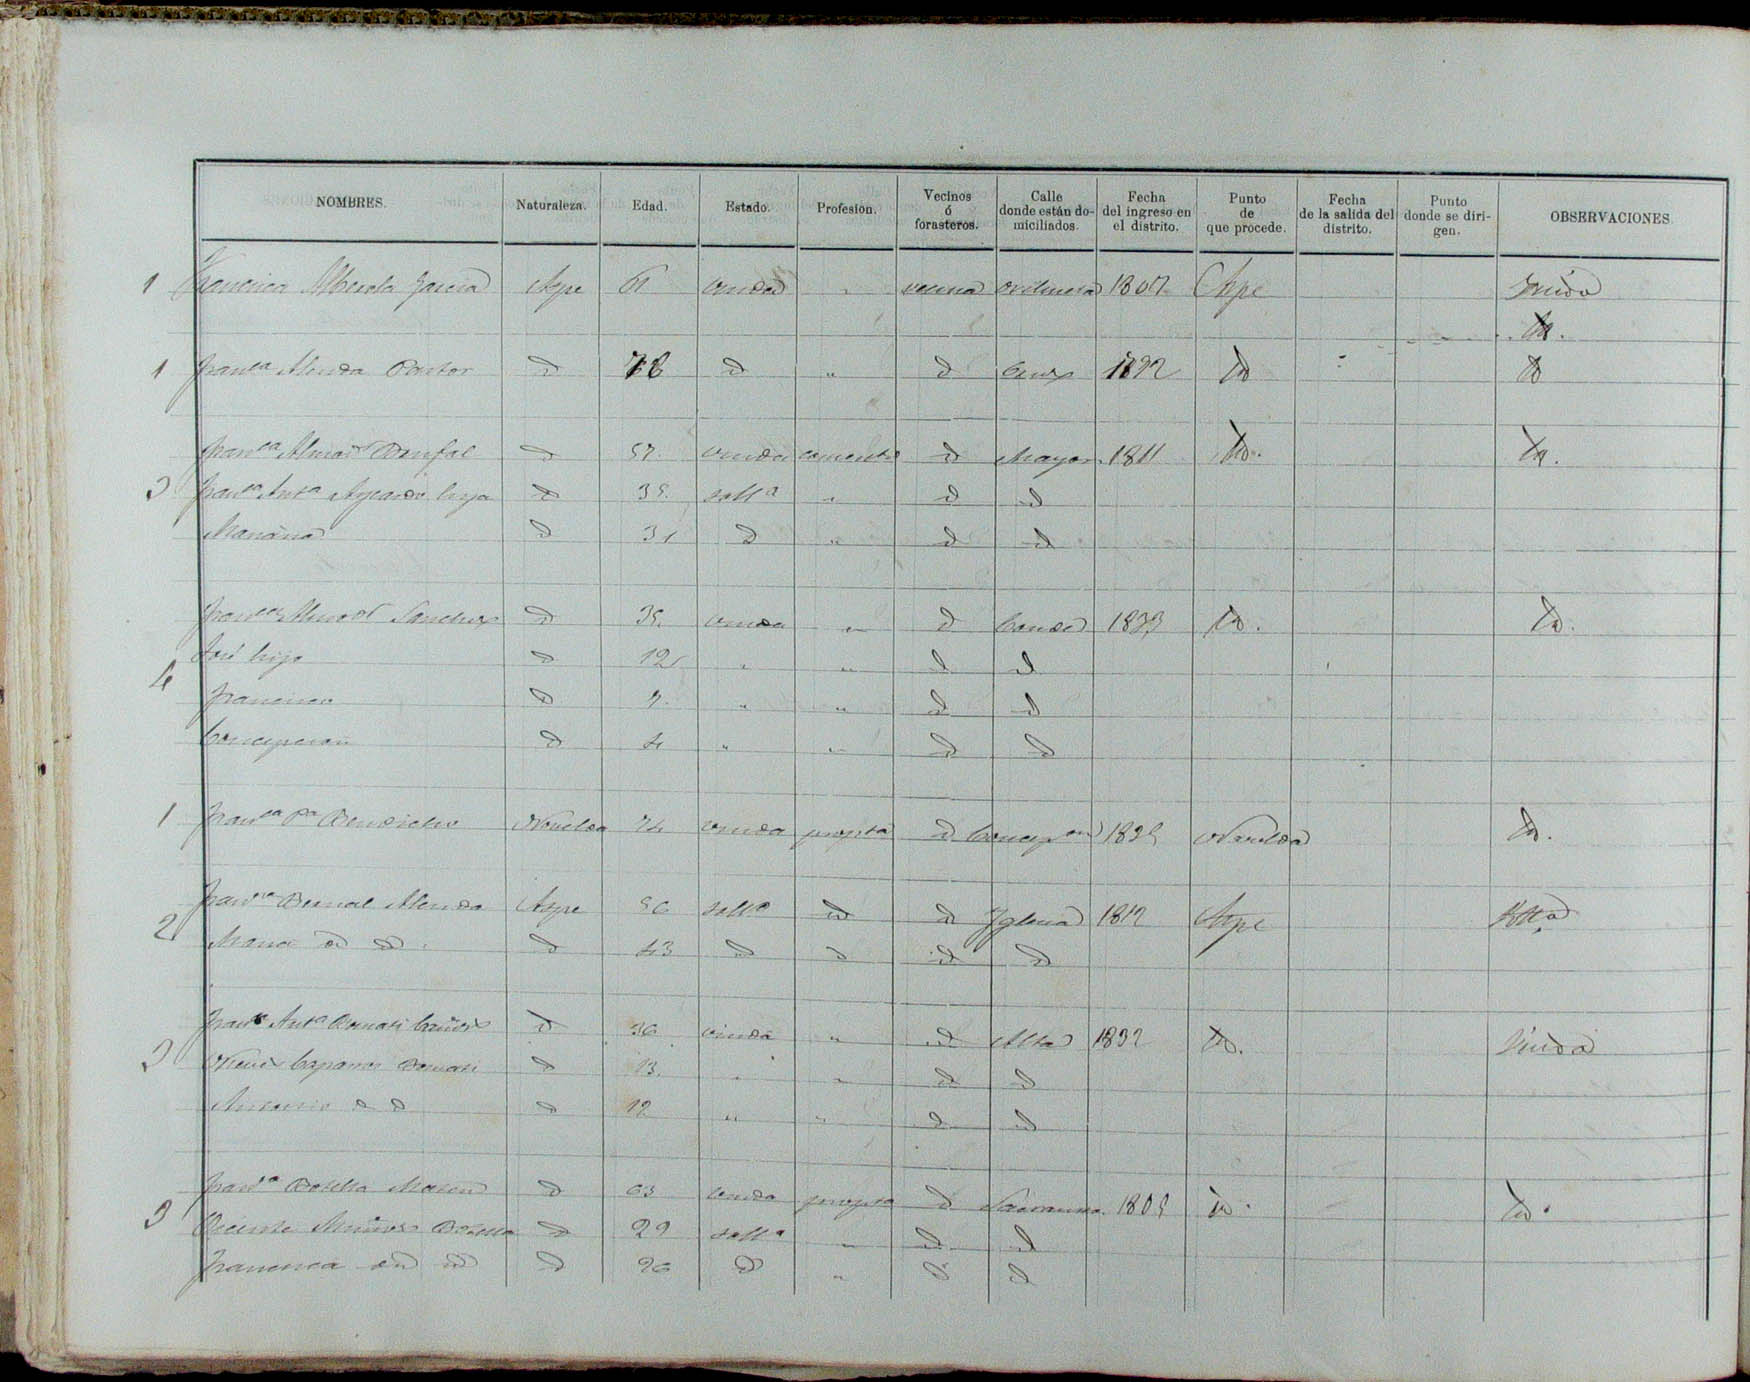 NOMBRES. Naturaleza. Edad. Estado. Profesion. Vecinos ó forasteros. Calle donde están domiciliados. Fecha del ingreso en el distrito. Punto de que procede. Fecha de la salida del distrito. Punto donde se dirigen. OBSERVACIONES.
1 Francisca Alberola Garcia Aspe 61 viuda " vecina 1807 Aspe Viuda
Id.
1 Franca Alenda Pastor d 76 d " d Cruz 1792 Id Id
Franca Almiñ Bonfal d 57. viuda d Mayor 1811 Id. Id.
3 Franca Anta hija d 35. solta " d d
Mariana d 31 d " d d
Franca Sanchez d 35. viuda " d Conde 1833 Id. Id.
José hijo d 12 " " d d
4 Francisco d 7. " " d d
Concepcion d 4 " " d d
1 Franca Pa Bendicho Novelda 74 viuda propta d Concepon 1825 Novelda Id.
Franca Bernal Alenda Aspe 56 solta d d Yglesia 1812 Aspe Solta
2 Maria d d. d 43 d d d d
Franca Anta Bernari Cañiz d 36 viuda " d Alta 1832 Id. Viuda
3 Caparros Bernari d 13. " " d d
Antonio d d d 12 " " d d
Franca Botella d 63 viuda propta d 1805 Id. Id.
3 Vicente Muñoz Botella d 29 solto " d d
Francisca d d d 26 d " d d